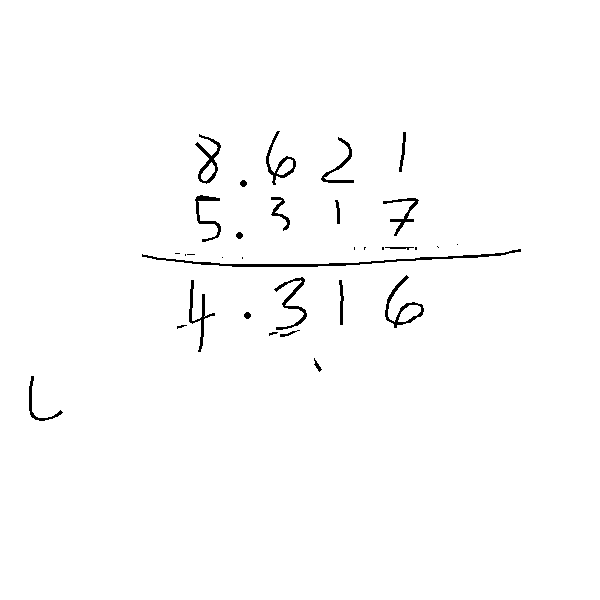 8.621
5.317
4.316
L